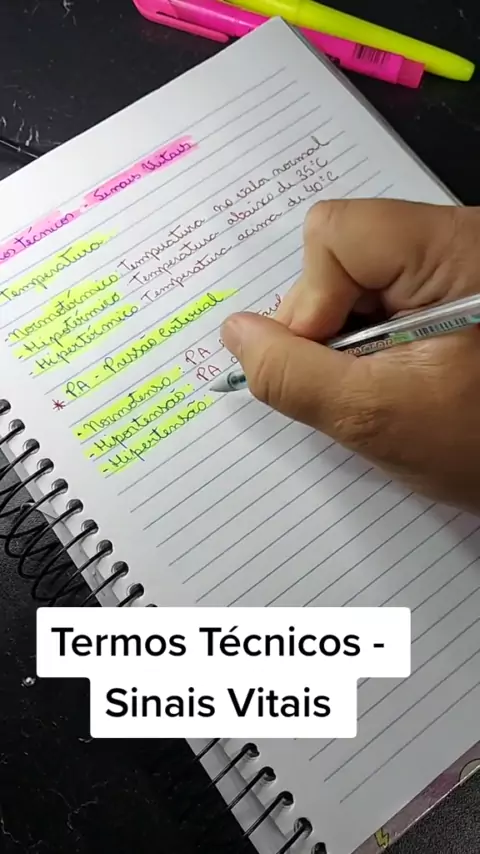 os técnicos - Sinais Vitais
Temperatura
- Normotérmico: Temperatura no valor normal
- Hipotérmico: Temperatura abaixo de 35°C
- Hipertérmico: Temperatura acima de 40°C
* PA - Pressão Arterial
- Normotenso: PA
- Hipotensão: PA
- Hipertensão:
Termos Técnicos -
Sinais Vitais